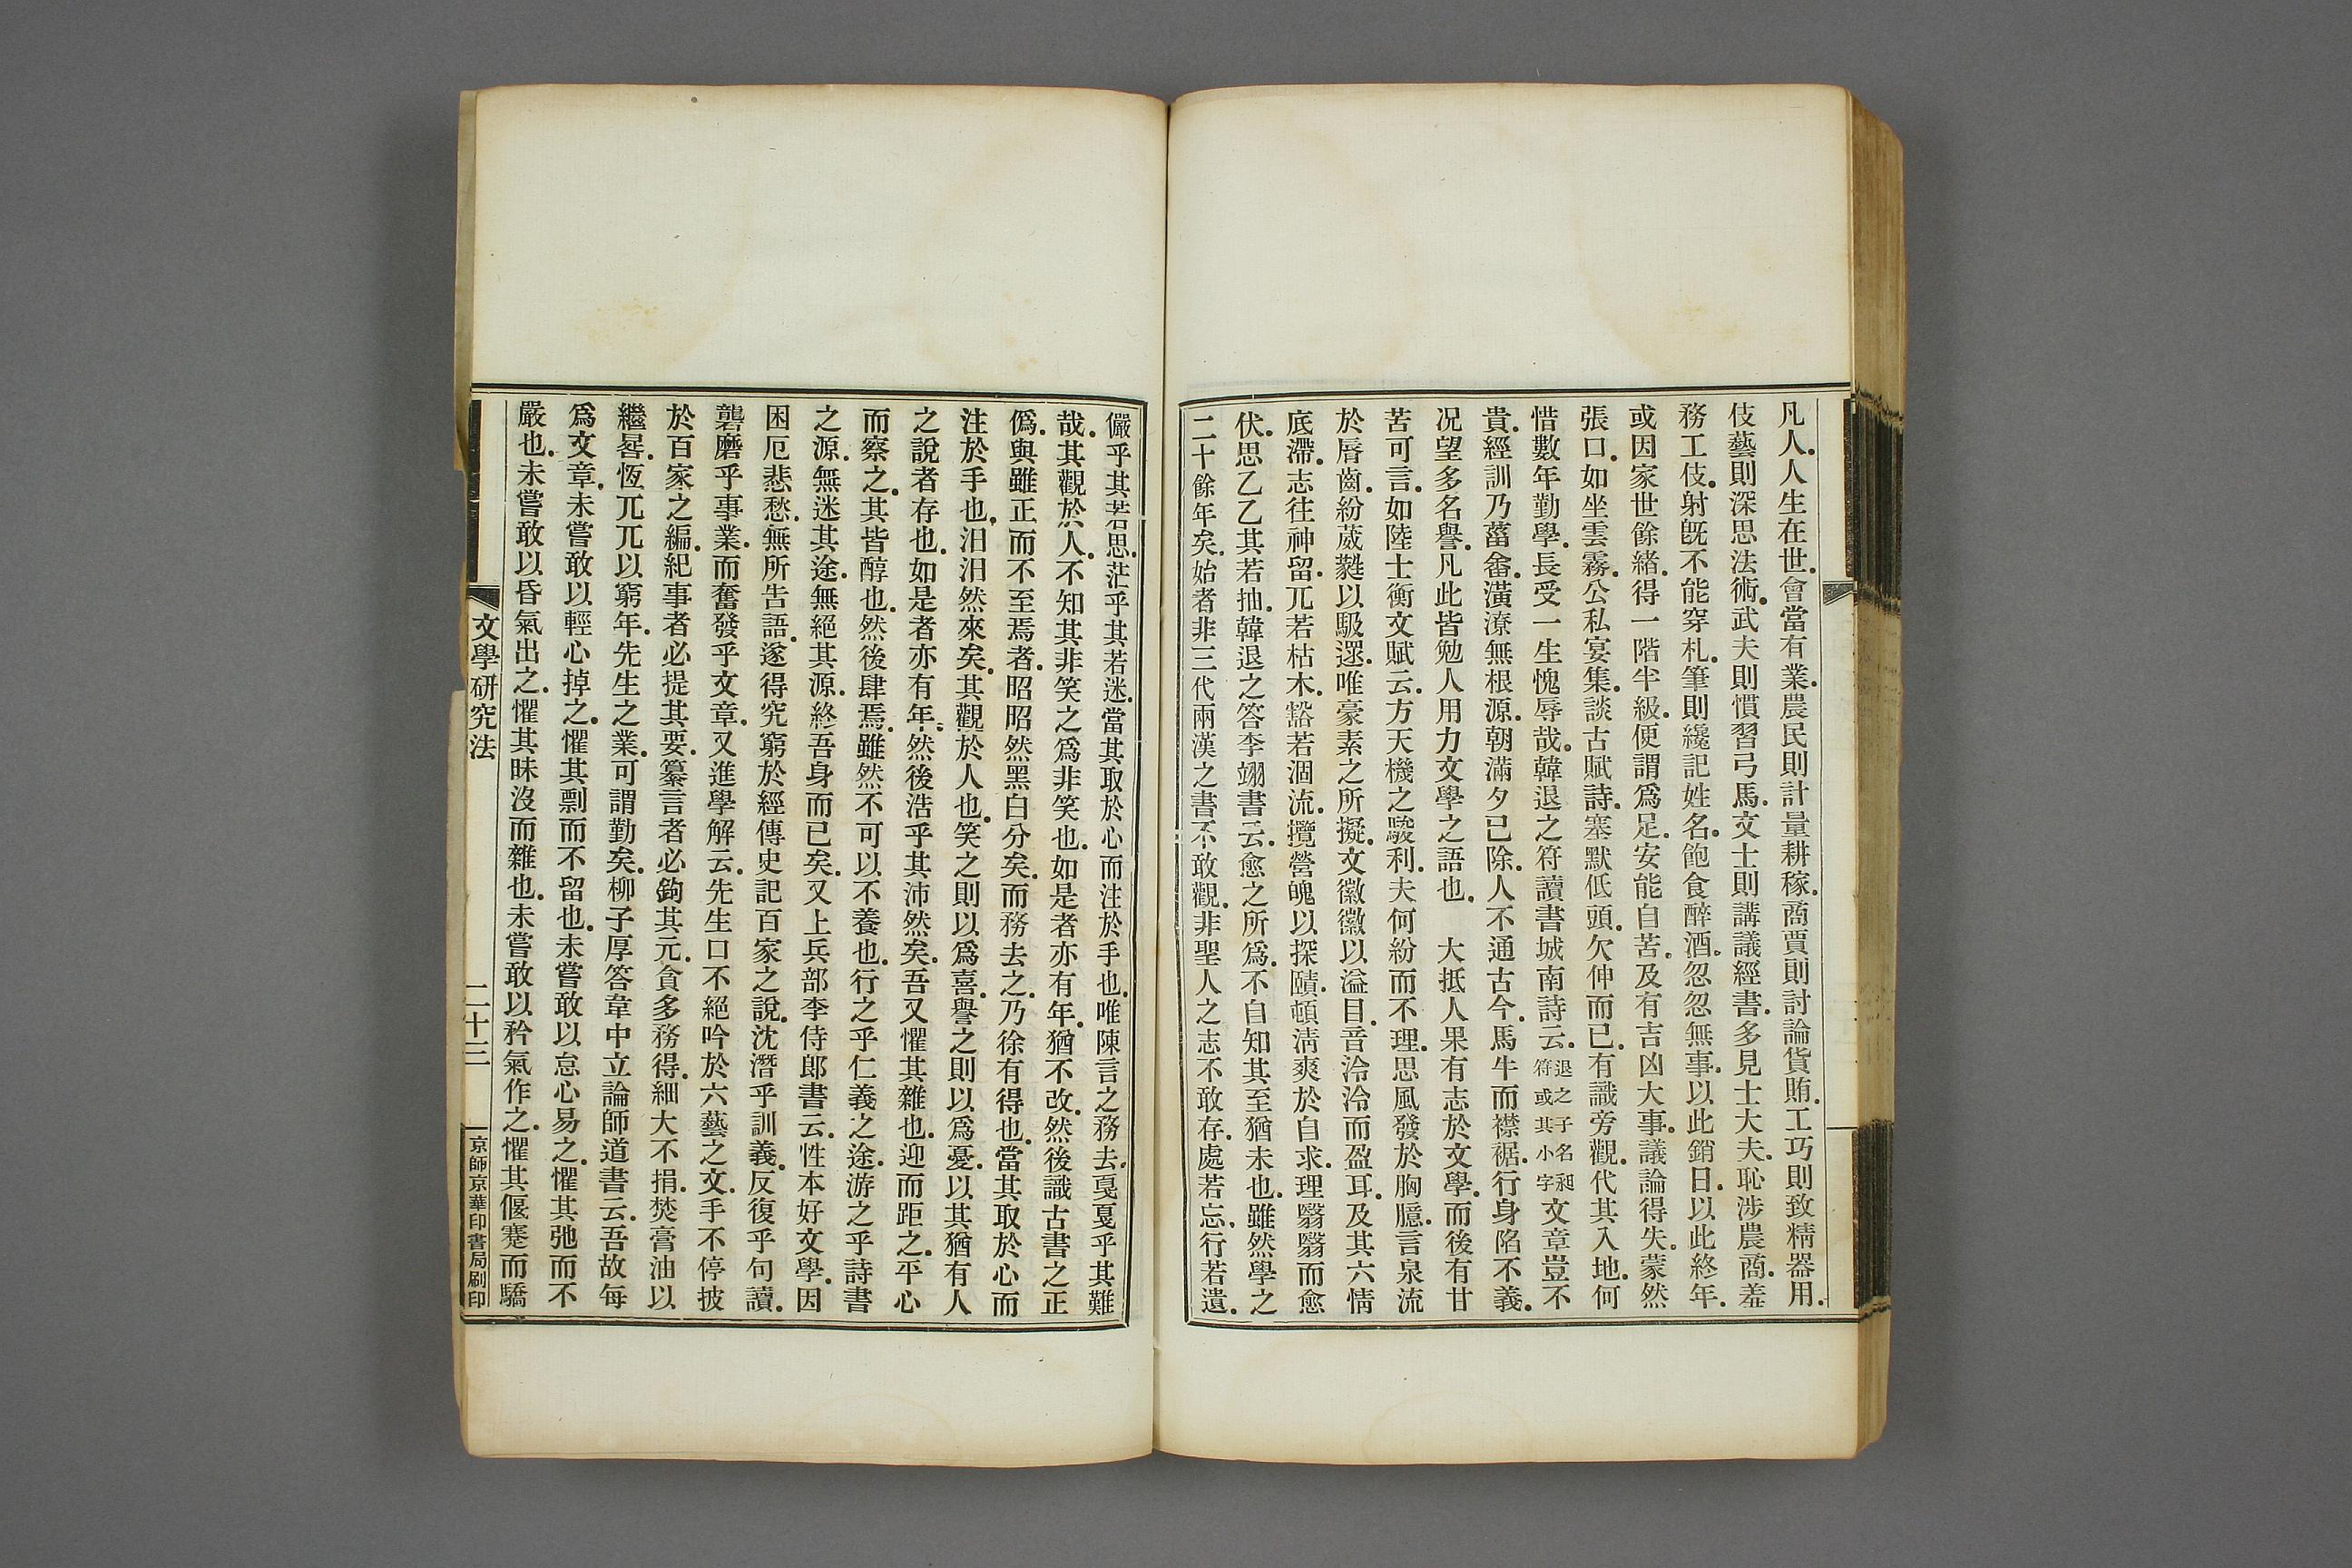 凡人。人生在世。會當有業。農民則計量耕稼。商賈則討論貨賄。工巧則致精器用。
伎藝則深思法術。武夫則慣習弓馬。文士則講議經書。多見士大夫。恥涉農商。羞
務工伎。射旣不能穿札。筆則纔記姓名。飽食醉酒。忽忽無事。以此銷日。以此終年。
或因家世餘緒。得一階半級。便謂爲足。安能自苦。及有吉凶大事。議論得失。蒙然
張口。如坐雲霧。公私宴集。談古賦詩。塞默低頭。欠伸而已。有識旁觀。代其入地。何
惜數年勤學。長受一生愧辱哉。韓退之符讀書城南詩云。退之子名昶符或其小字文章豈不
貴。經訓乃菑畬。潢潦無根源。朝滿夕已除。人不通古今。馬牛而襟裾。行身陷不義。
况望多名譽。凡此皆勉人用力文學之語也。　大抵人果有志於文學。而後有甘
苦可言。如陸士衡文賦云。方天機之駿利。夫何紛而不理。思風發於胸臆。言泉流
於脣齒。紛葳蕤以馺遝。唯豪素之所擬。文徽徽以溢目。音泠泠而盈耳。及其六情
底滯。志往神留。兀若枯木。豁若涸流。攬營魄以探賾。頓淸爽於自求。理翳翳而愈
伏。思乙乙其若抽。韓退之答李翊書云。愈之所爲。不自知其至猶未也。雖然學之
二十餘年矣。始者非三代兩漢之書不敢觀。非聖人之志不敢存。處若忘。行若遺。
儼乎其若思。茫乎其若迷。當其取於心而注於手也。唯陳言之務去。戛戛乎其難
哉。其觀於人。不知其非笑之爲非笑也。如是者亦有年。猶不改。然後識古書之正
僞。與雖正而不至焉者。昭昭然黑白分矣。而務去之。乃徐有得也。當其取於心而
注於手也。汩汩然來矣。其觀於人也。笑之則以爲喜。譽之則以爲憂。以其猶有人
之說者存也。如是者亦有年。然後浩乎其沛然矣。吾又懼其雜也。迎而距之。平心
而察之。其皆醇也。然後肆焉。雖然不可以不養也。行之乎仁義之途。游之乎詩書
之源。無迷其途。無絕其源。終吾身而已矣。又上兵部李侍郎書云。性本好文學。因
困厄悲愁。無所告語。遂得究窮於經傳史記百家之說。沈潛乎訓義。反復乎句讀。
礱磨乎事業。而奮發乎文章。又進學解云。先生口不絕吟於六藝之文。手不停披
於百家之編。紀事者必提其要。纂言者必鉤其元。貪多務得。細大不捐。焚膏油以
繼晷。恆兀兀以窮年。先生之業。可謂勤矣。柳子厚答韋中立論師道書云。吾故每
爲文章。未嘗敢以輕心掉之。懼其剽而不留也。未嘗敢以怠心易之。懼其弛而不
嚴也。未嘗敢以昏氣出之。懼其昧沒而雜也。未嘗敢以矜氣作之。懼其偃蹇而驕
文學研究法
二十三
京師京華印書局刷印